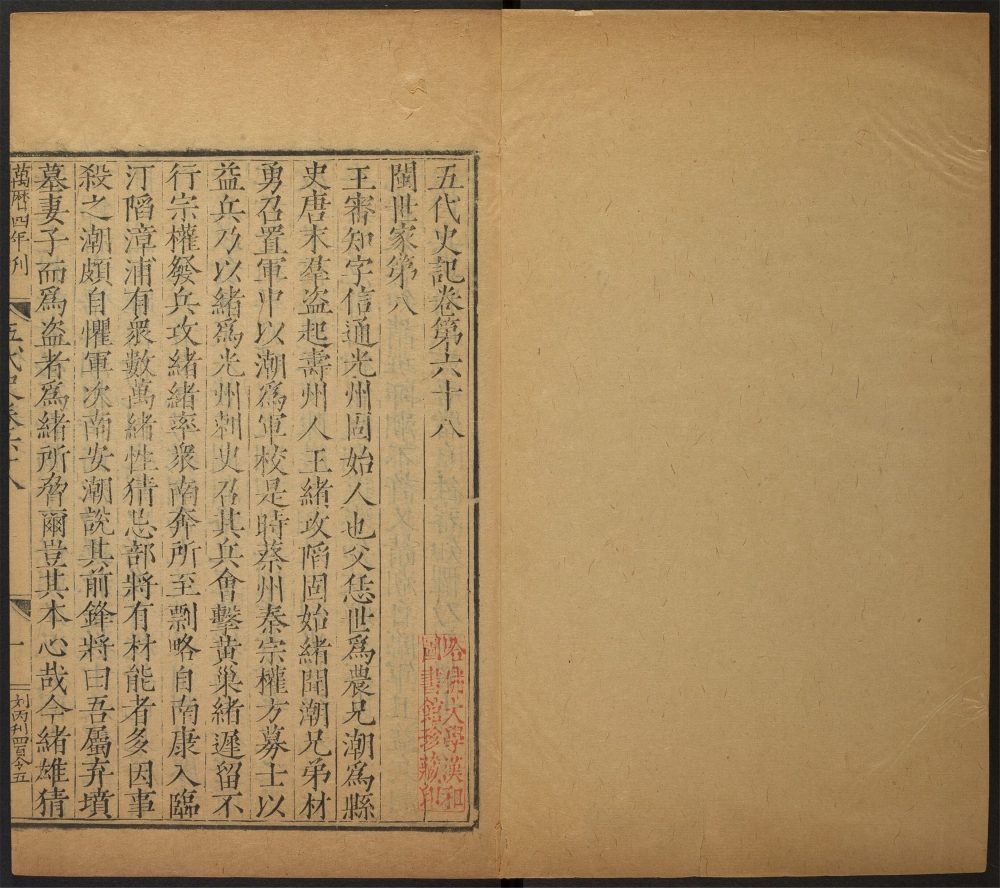 五代史記卷第六十八
閩世家第八
王審知字信通光州固始人也父恁世爲農兄潮爲縣
史唐末羣盗起壽州人王緒攻䧟固始緒聞潮兄弟材
勇召置軍中以潮爲軍校是時蔡州秦宗權方募士以
益兵乃以緒爲光州刺史召其兵會擊黄巢緒遲留不
行宗權發兵攻緒緒率衆南奔所至剽略自南康入臨
汀䧟漳浦有衆數萬緒性猜忌部將有材能者多因事
殺之潮頗自懼軍次南安潮說其前鋒將曰吾屬弃墳
墓妻子而爲盗者爲緒所脅爾豈其本心哉今緒雄猜
萬曆四年刊
五代史卷六十八
一
刘丙刊四百令五
哈佛大學漢和
圖書館珍藏印